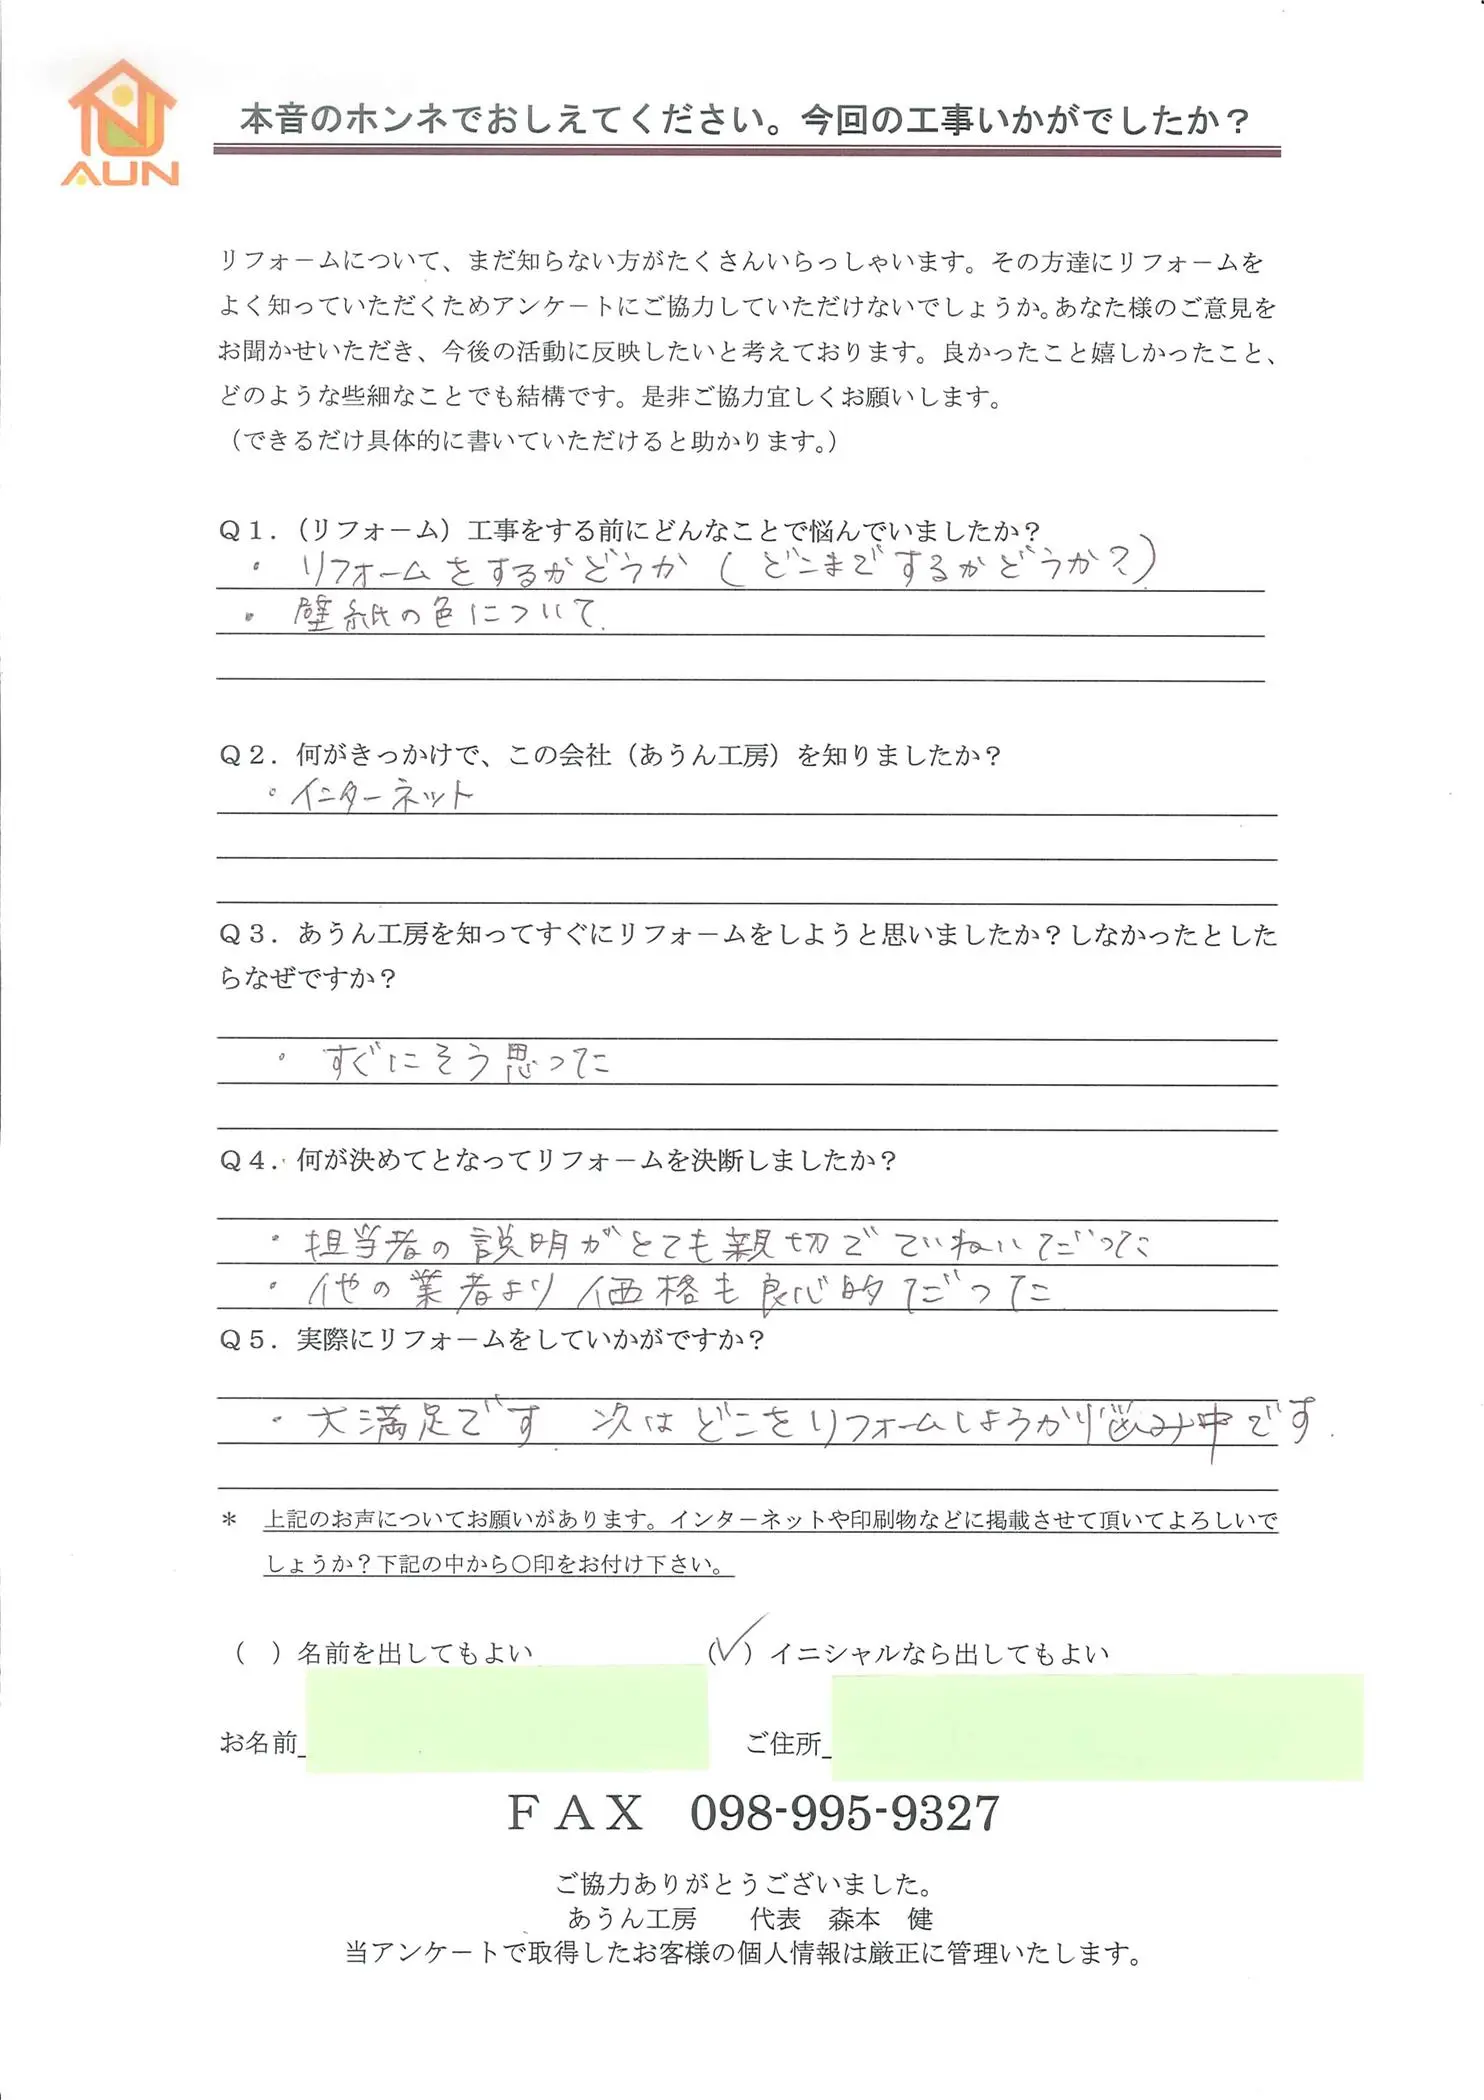 AUN
本音のホンネでおしえてください。今回の工事いかがでしたか？
リフォームについて、まだ知らない方がたくさんいらっしゃいます。その方達にリフォームを
よく知っていただくためアンケートにご協力していただけないでしょうか。あなた様のご意見を
お聞かせいただき、今後の活動に反映したいと考えております。良かったこと嬉しかったこと、
どのような些細なことでも結構です。是非ご協力宜しくお願いします。
（できるだけ具体的に書いていただけると助かります。）
Ｑ１．（リフォーム）工事をする前にどんなことで悩んでいましたか？
・リフォームをするかどうか（どこまでするかどうか？）
・壁紙の色について.
Ｑ２．何がきっかけで、この会社（あうん工房）を知りましたか？
・インターネット
Ｑ３．あうん工房を知ってすぐにリフォームをしようと思いましたか？しなかったとした
らなぜですか？
・すぐにそう思った
Ｑ４．何が決めてとなってリフォームを決断しましたか？
・担当者の説明がとても親切でていねいだった
・他の業者より価格も良心的だった
Ｑ５．実際にリフォームをしていかがですか？
・大満足です. 次はどこをリフォームしようか悩み中です.
＊　上記のお声についてお願いがあります。インターネットや印刷物などに掲載させて頂いてよろしいで
しょうか？下記の中から〇印をお付け下さい。
（　）名前を出してもよい　（✓）イニシャルなら出してもよい
お名前　ご住所
ＦＡＸ　098-995-9327
ご協力ありがとうございました。
あうん工房　　代表　森本　健
当アンケートで取得したお客様の個人情報は厳正に管理いたします。